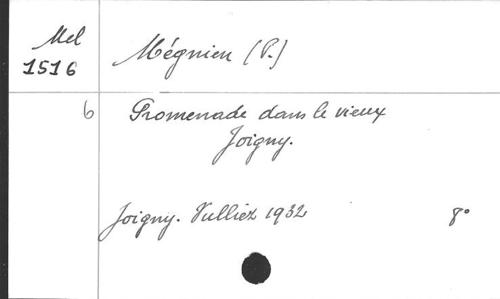 Mel
1516
Mégnien (P.)
6
Promenade dans le vieux
Joigny.
Joigny. Vulliez 1932
8°